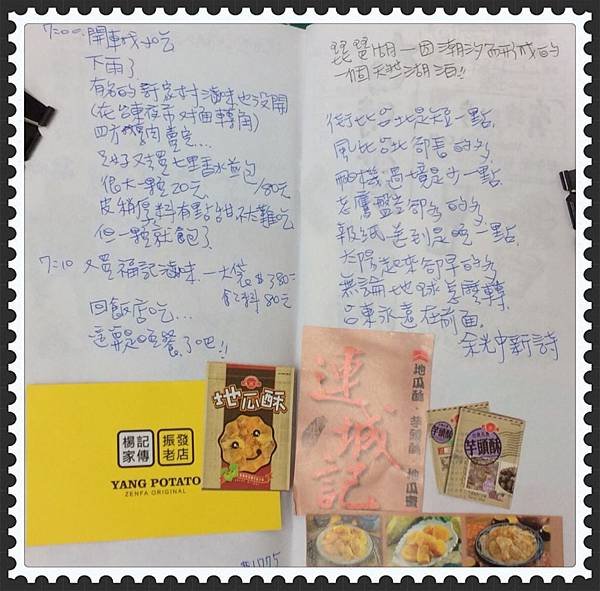 7:00 開車找小吃
下雨了
有名的許家村滷味也沒開
(在台東夜市對面轉角)
四方鵝肉賣完...
只好又買七里香水煎包
很大一顆20元 /80元
皮稍厚料有點甜不太難吃
但一顆就飽了
7:10 又買福記滷味.一大袋$380元
飲料80元
回飯店吃...
這就是晚餐了吧!!
楊記
家傳
振發
老店
YANG POTATO
ZENFA ORIGINAL
地瓜酥
$1775
琵琶湖一因潮汐而形成的
一個天然湖泊!!
街比台北是短一點
風比台北卻香的多
飛機過境是少一點
老鷹盤空卻多的多
報紙送到是晚一點
太陽起來卻早的多
無論地球怎麼轉
台東永遠在前面.
余光中新詩
連城記
地瓜酥、芋頭酥、地瓜蜜
芋頭酥
芋頭酥